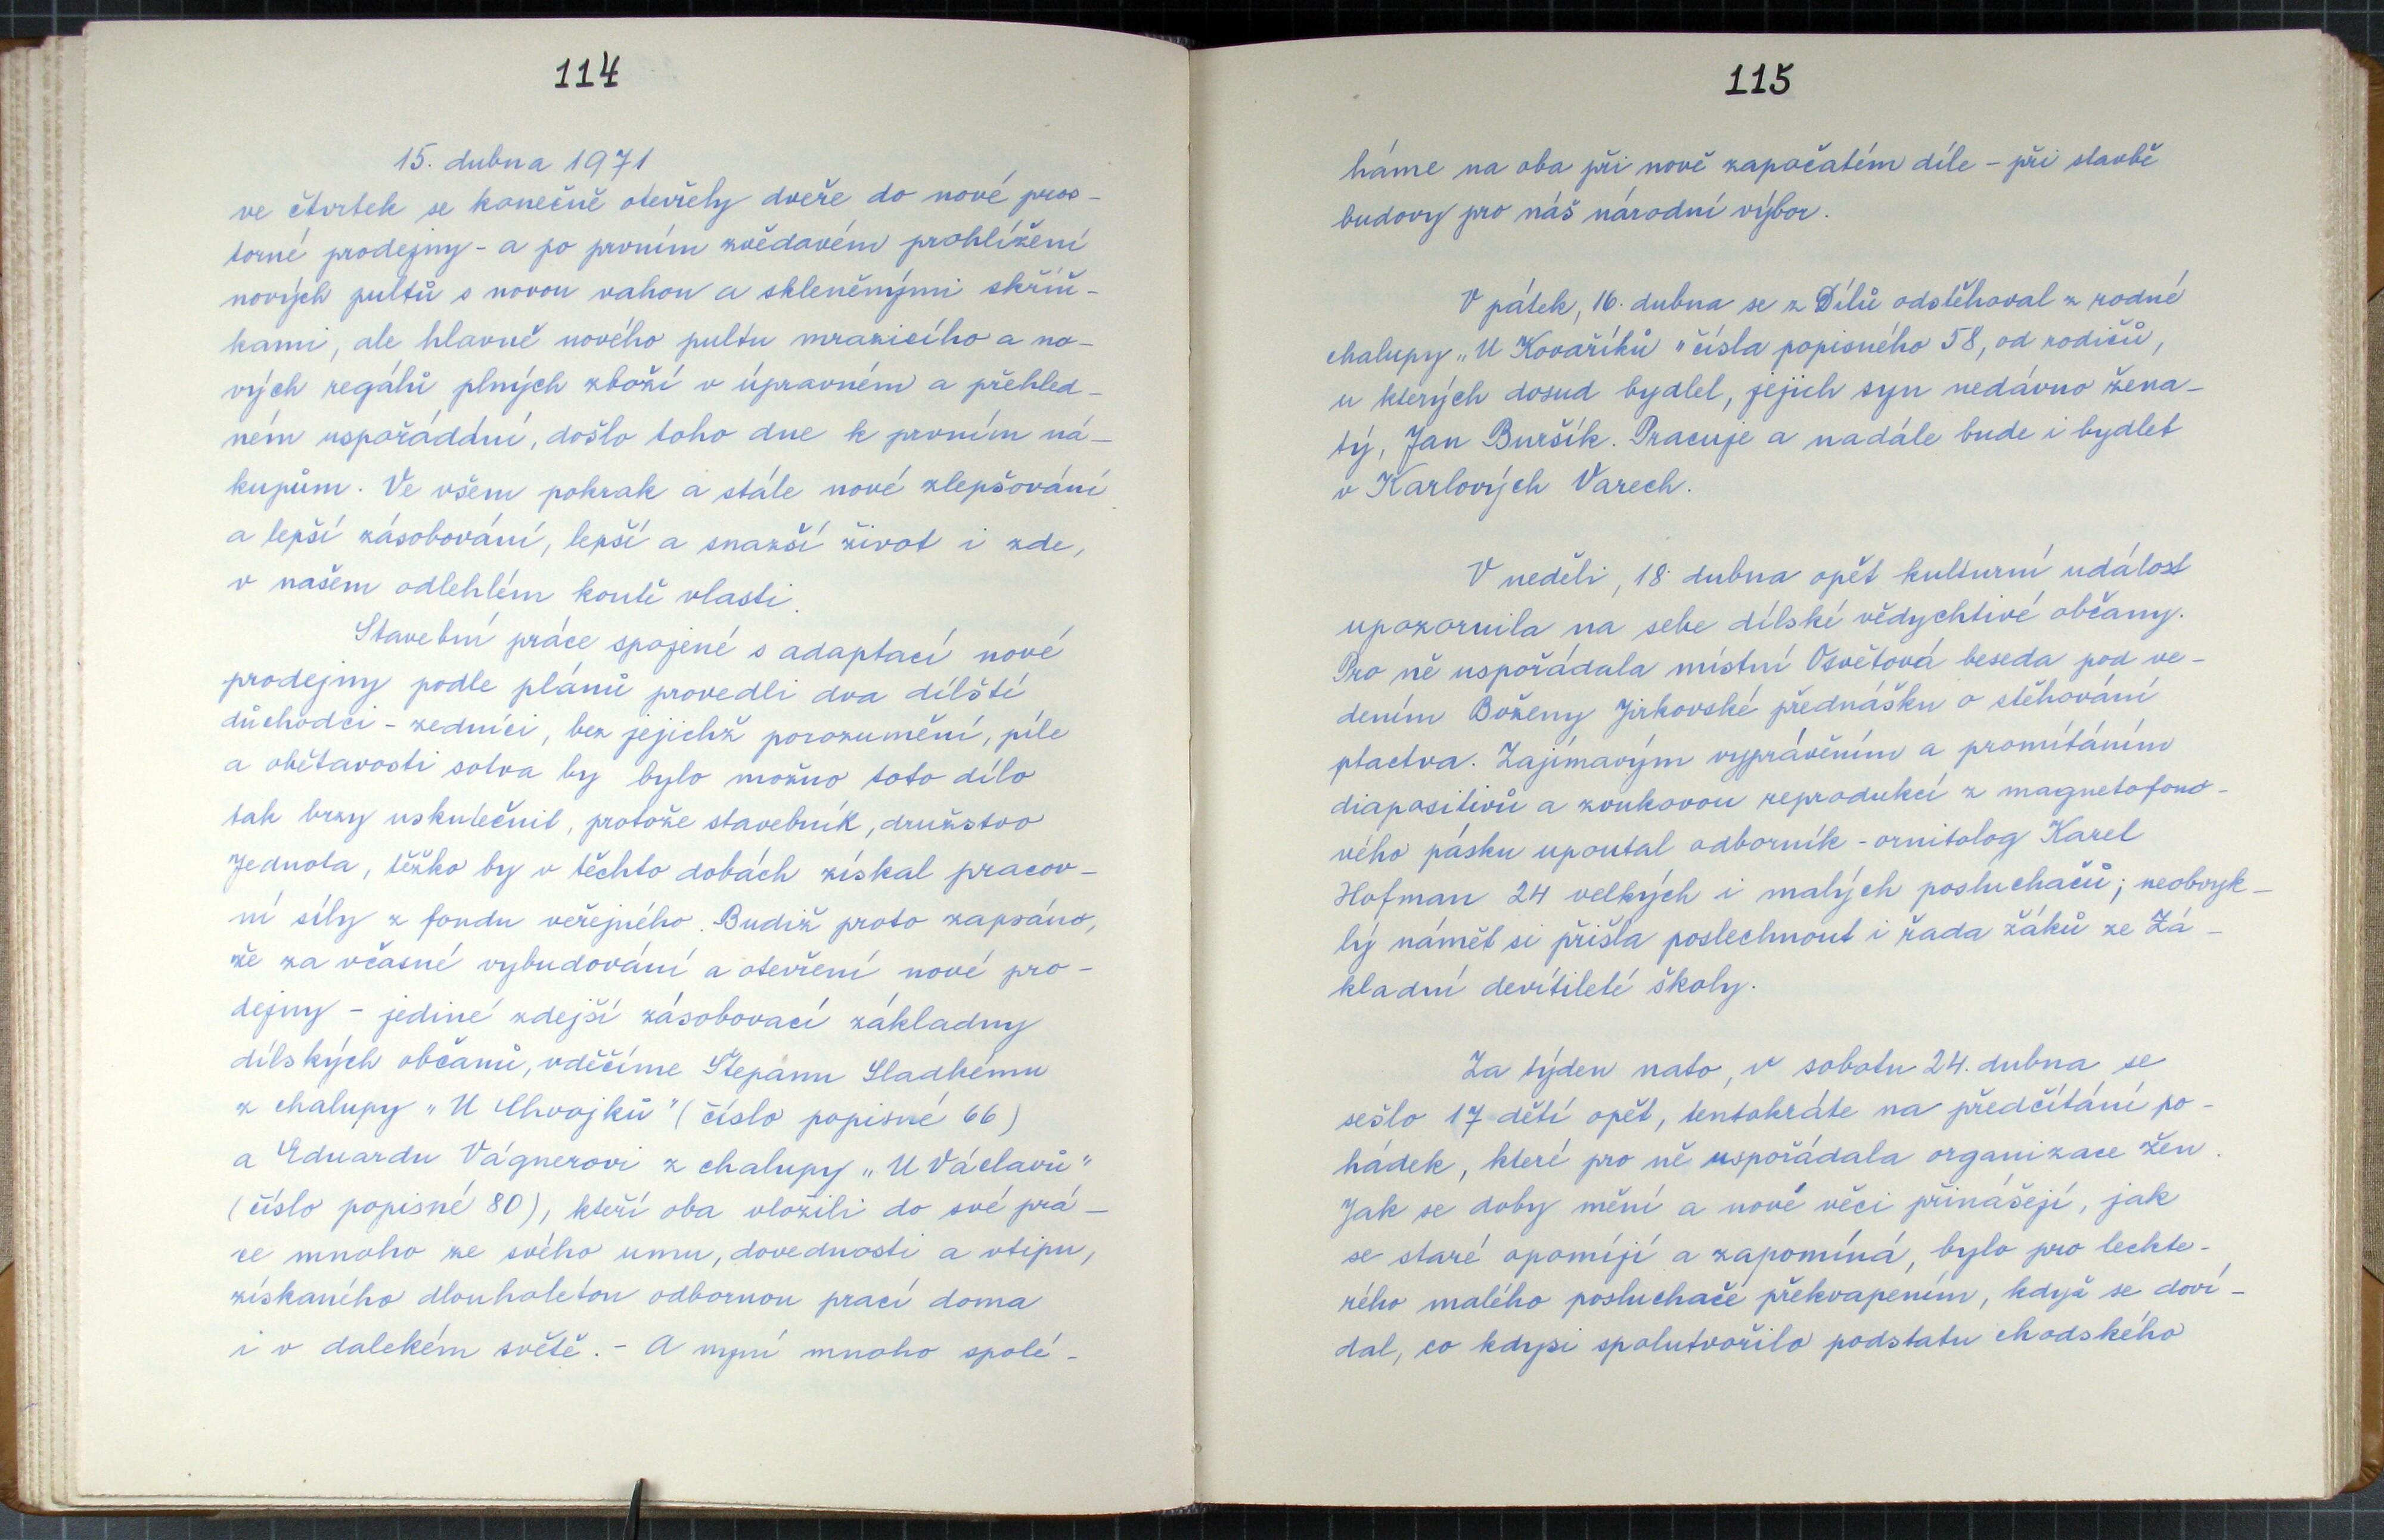 114
15. dubna 1971
ve čtvrtek se konečně otevřely dveře do nové pros-
torné prodejny - a po prvním zvědavém prohlížení
nových pultů s novou vahou a skleněnými skříň-
kami, ale hlavně nového pultu mrazicího a no-
vých regálů plných zboží v úpravném a přehled-
ném uspořáddní, došlo toho dne k prvním ná-
kupům. Ve všem pokrak a stále nové zlepšování
a lepší zásobování, lepší a snazší život i zde,
v našem odlehlém koutě vlasti.
Stavební práce spojené s adaptací nové
prodejny podle plánů provedli dva dílští
důchodci - zedníci, bez jejichž porozumění, píle
a obětavosti sotva by bylo možno toto dílo
tak brzy uskutečnit, protože stavebník, družstvo
Jednota, těžko by v těchto dobách získal pracov-
ní síly z fondu veřejného. Budiž proto zapsáno,
že za včasné vybudování a otevření nové pro-
dejny - jediné zdejší zásobovací základny
dílských občanů, vděčíme Štepánu Sladkému
z chalupy „U Chvojků" (číslo popisné 66)
a Eduardu Vágnerovi z chalupy „U Václavů"
(číslo popisné 80), kteří oba vložili do své prá-
ce mnoho ze svého umu, dovednosti a vtipu,
získaného dlouholetou odbornou prací doma
i v dalekém světě. - A nyní mnoho spolé-
115
háme na oba při nově započatém díle - při stavbě
budovy pro náš národní výbor.
V pátek, 16. dubna se z Dílů odstěhoval z rodné
chalupy „U Kovaříků" čísla popisného 58, od rodičů,
u kterých dosud bydlel, jejich syn nedávno žena-
tý, Jan Buršík. Pracuje a nadále bude i bydlet
v Karlových Varech.
V neděli, 18. dubna opět kulturní událost
upozornila na sebe dílské vědychtivé občany.
Pro ně uspořádala místní Osvětová beseda pod ve-
dením Boženy Jirkovské přednášku o stěhování
ptactva. Zajímavým vyprávěním a promítáním
diapositivů a zvukovou reprodukcí z magnetofono-
vého pásku upoutal odborník - ornitolog Karel
Hofman 24 velkých i malých posluchačů; neobvyk-
lý námět si přišla poslechnout i řada žáků ze Zá-
kladní devítileté školy.
Za týden nato, v sobotu 24. dubna se
sešlo 17 dětí opět, tentokráte na předčítání po-
hádek, které pro ně uspořádala organizace žen.
Jak se doby mění a nové věci přinášejí, jak
se staré opomíjí a zapomíná, bylo pro leckte-
rého malého posluchače překvapením, když se doví-
dal, co kdysi spolutvořilo podstatu chodského